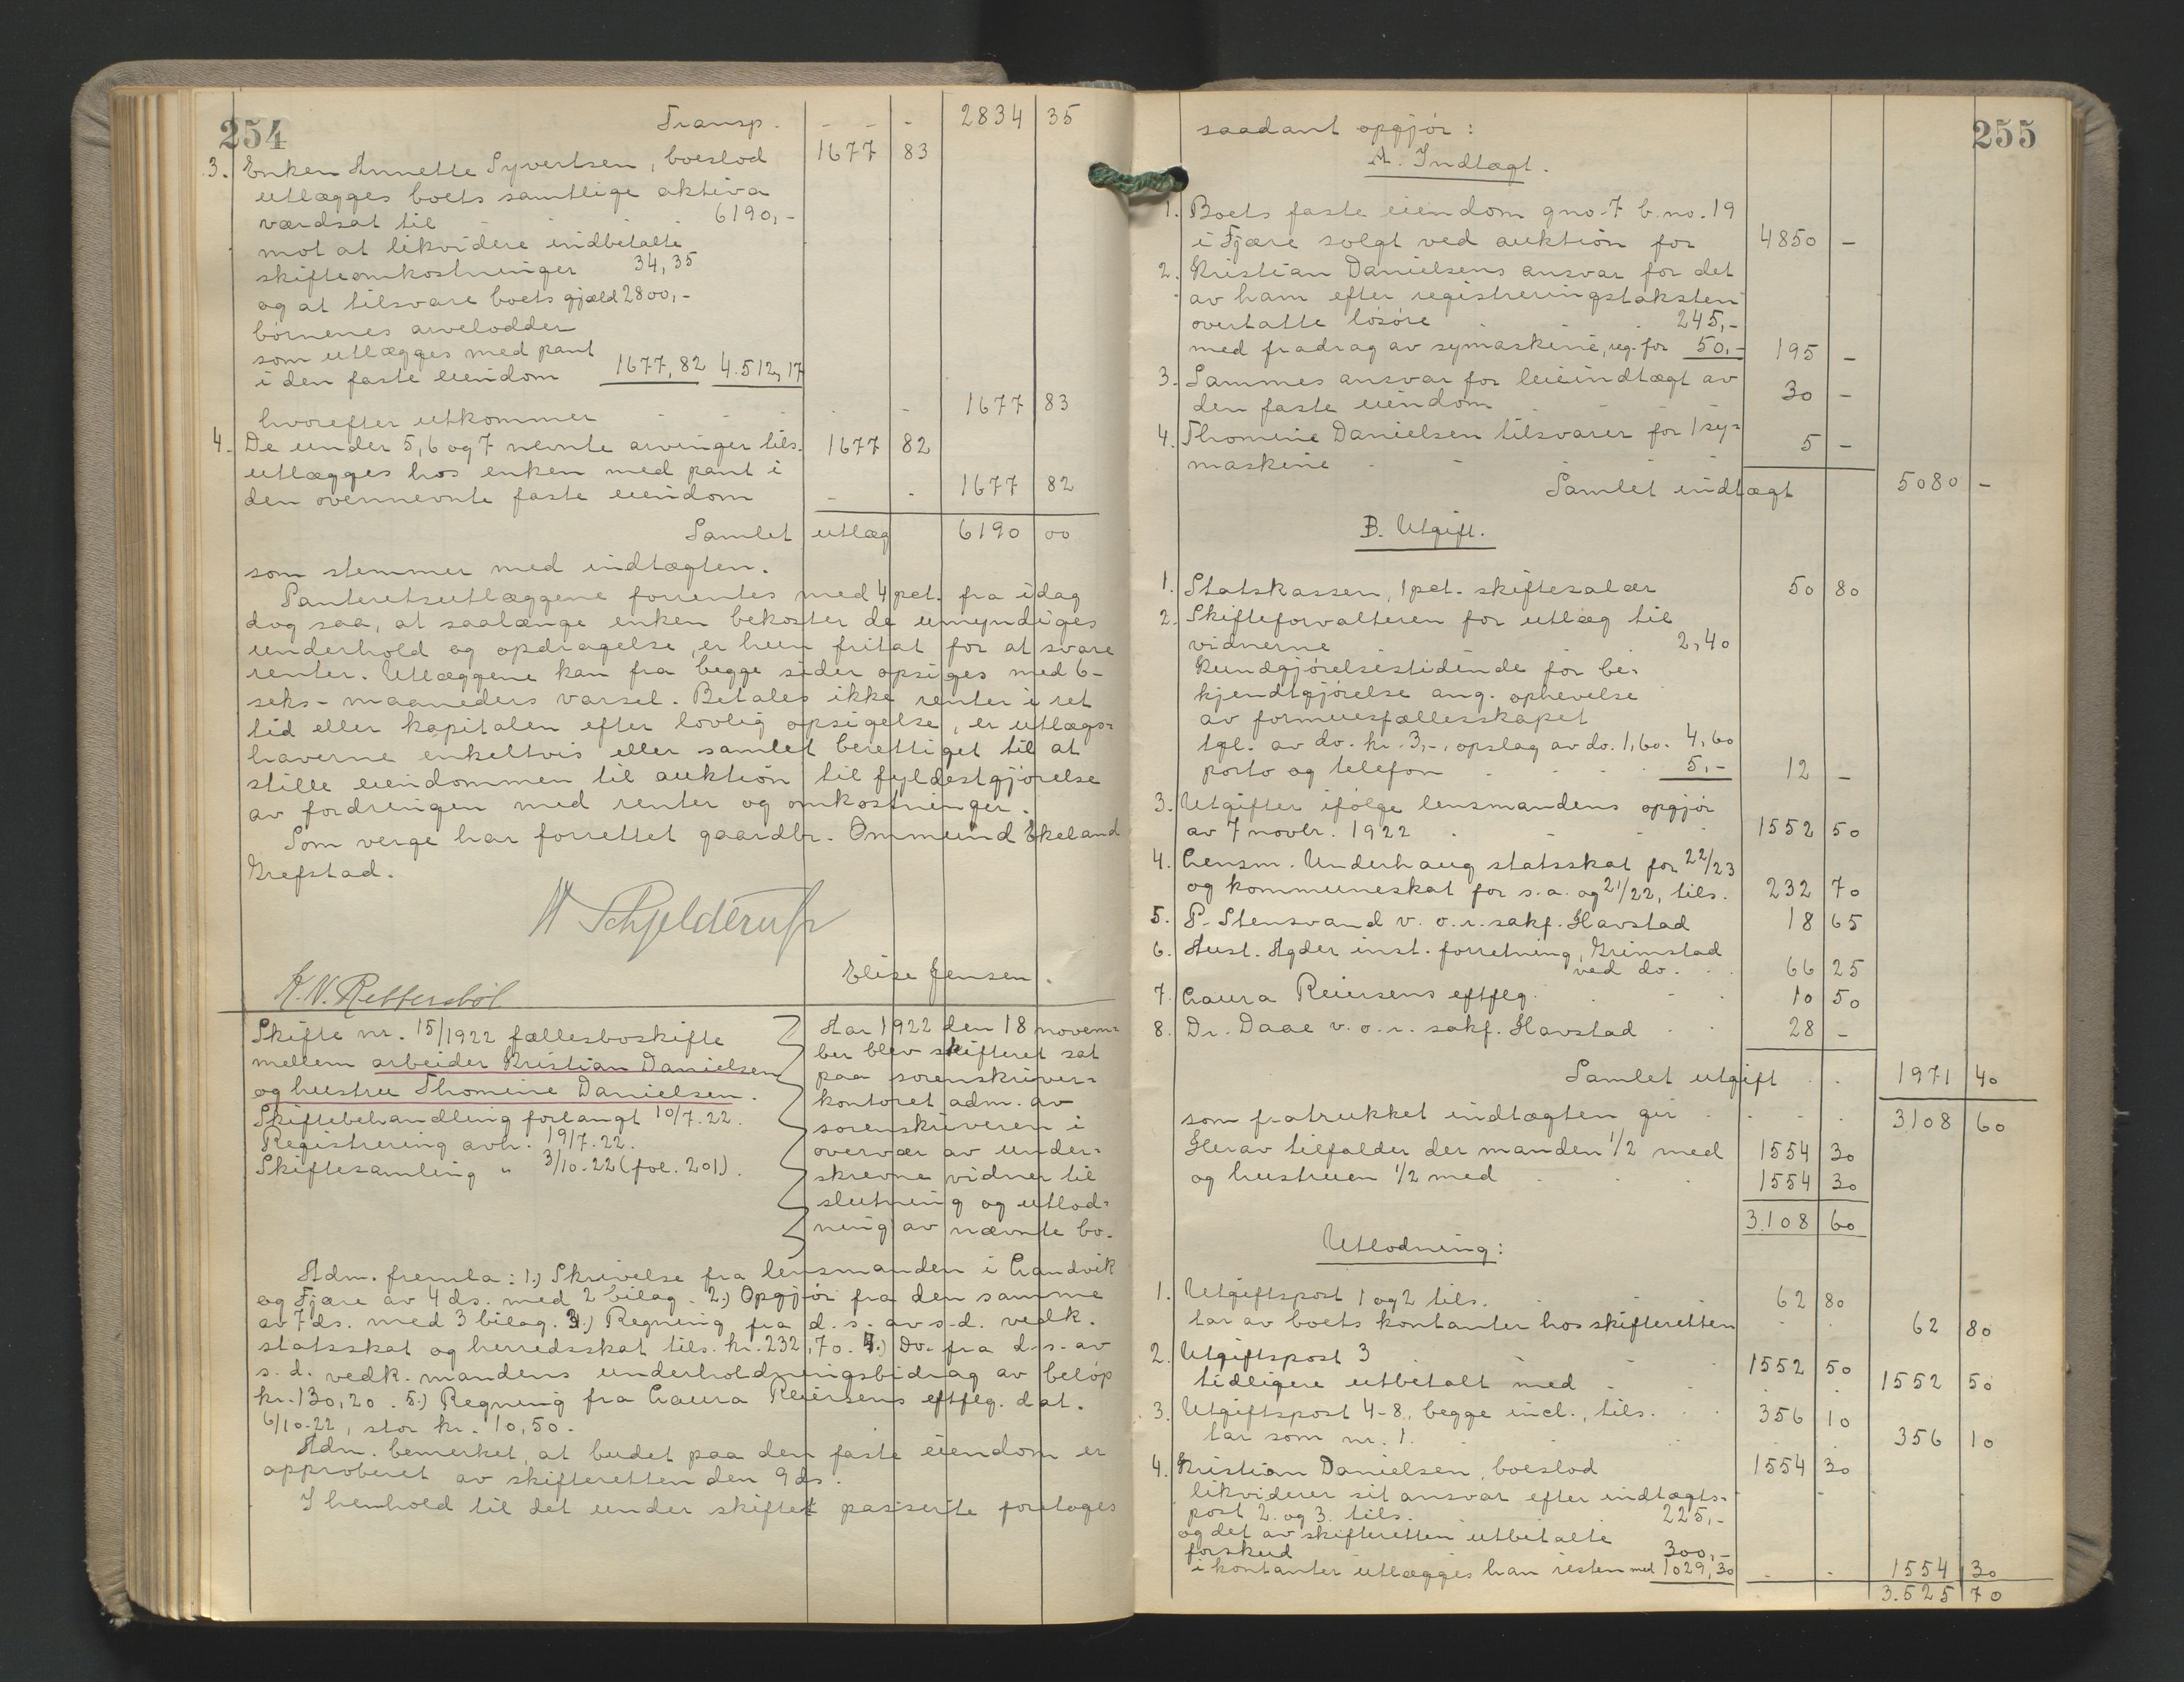 254
Transp. - - - 2834 35
3. Enken Annette Syvertsen, boeslod 1677 83
utlægges boets samtlige aktiva
værdsat til 6190,-
mot at likvidere indbetalte
skifteomkostninger 34,35
og at tilsvare boets gjæld 2800,-
børnenes arvelodder
som utlægges med pant
i den faste eiendom 1677,82 4.512,17
hvorefter utkommer - - - - - 1677 83
4. De under 5, 6 og 7 nevnte arvinger tils. 1677 82
utlægges hos enken med pant i
den ovennevnte faste eiendom - - 1677 82
Samlet utlæg 6190 00
som stemmer med indtægten.
Panteretsutlæggene forrentes med 4 pct. fra idag
dog saa, at saalænge enken bekoster de umyndiges
underhold og opdragelse, er hun fritat for at svare
renter. Utlæggene kan fra begge sider opsiges med 6-
seks- maaneders varsel. Betales ikke renter i ret
tid eller kapitalen efter lovlig opsigelse, er utlægs=
haverne enkeltvis eller samlet berettiget til at
stille eiendommen til auktion til fyldestgjørelse
av fordringen med renter og omkostninger.
Som verge har forrettet gaardbr. Ommund Ekeland
Grefstad.
Schjelderup
Elise Jensen.
K. N. Rettersbøl
Skifte nr. 15/1922 fællesboskifte
mellem arbeider Kristian Danielsen
og hustru Thomine Danielsen.
Skiftebehandling forlangt 10/7.22.
Registrering avh. 19/7.22.
Skiftesamling " 3/10.22 (fol. 201).
Aar 1922 den 18 novem=
ber blev skifteret sat
paa sorenskriver=
kontoret adm. av
sorenskriveren i
overvær av under=
skrevne vidner til
slutning og utlod=
ning av nævnte bo.
Adm. fremla: 1.) Skrivelse fra lensmanden i Landvik
og Fjære av 4 ds. med 2 bilag. 2.) Opgjør fra den samme
av 7 ds. med 3 bilag. 3.) Regning fra d. s. av s.d. vedk.
statsskat og herredsskat tils. kr. 232,70. 4.) Do. fra d. s. av
s. d. vedk. mandens underholdningsbidrag av beløp
kr. 130,20. 5.) Regning fra Laura Reiersens eftflg. dat.
6/10-22, stor kr. 10,50.
Adm. bemerket, at budet paa den faste eiendom er
approberet av skifteretten den 9 ds.
I henhold til det under skiftet passerte foretages
255
saadant opgjør:
A. Indtægt.
1. Boets faste eiendom gno. 7 b.no. 19
i Fjære solgt ved auktion for 4850 -
2. Kristian Danielsens ansvar for det
av ham efter registreringstaksten
overtatte løsøre 245,-
med fradrag av symaskine, reg. for 50,- 195 -
3. Sammes ansvar for leieindtægt av
den faste eiendom 30 -
4. Thomine Danielsen tilsvarer for 1 sy=
maskine 5 -
Samlet indtægt 5080 -
B. Utgift.
1. Statskassen, 1 pct. skiftesalær 50 80
2. Skifteforvalteren for utlæg til
vidnerne 2,40
Kundgjørelsestidende for be-
kjendtgjørelse ang. ophevelse
av formuesfællesskapet
tgl. av do. kr. 3,-, opslag av do. 1,60. 4,60
porto og telefon 5,- 12 -
3. Utgifter ifølge lensmandens opgjør
av 7 novbr. 1922 1552 50
4. Lensm. Underhaug statsskat for 22/23
og kommuneskat for s.a. og 21/22, tils. 232 70
5. P. Stensvand v. o.r.sakf. Havstad 18 65
6. Aust. Agder inst. forretning, Grimstad
ved do. 66 25
7. Laura Reiersens eftflg. 10 50
8. Dr. Daae v. o. r. sakf. Havstad 28 -
Samlet utgift 1971 40
som fratrukket indtægten gir 3.108 60
Herav tilfalder der manden 1/2 med 1554 30
og hustruen 1/2 med 1554 30
3.108 60
Utlodning:
1. Utgiftspost 1 og 2 tils. 62 80
tar av boets kontanter hos skifteretten 62 80
2. Utgiftspost 3 1552 50
tidligere utbetalt med 1552 50
3. Utgiftspost 4-8, begge incl., tils. 356 10
tar som nr. 1. 356 10
4. Kristian Danielsen, boeslod 1554 30
likviderer sit ansvar efter indtægts=
post 2. og 3. tils. 225,-
og det av skifteretten utbetalte
forskud 300,-
i kontanter utlægges han resten med 1029,30 1554 30
3.525 70